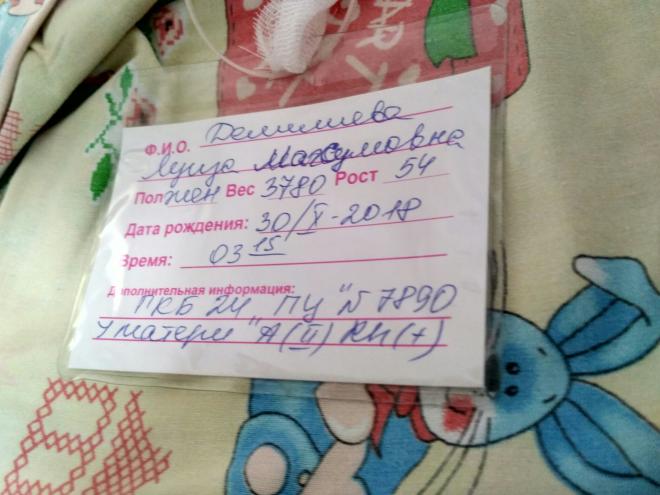 Ф.И.О. Далилиева
Луиза Махсумовна
Пол жен Вес 3780 Рост 54
Дата рождения: 30/X-2018
Время: 03 15
Дополнительная информация:
ГКБ 24 ПЦ "№ 7890
У матери "A(II) Rh(+)